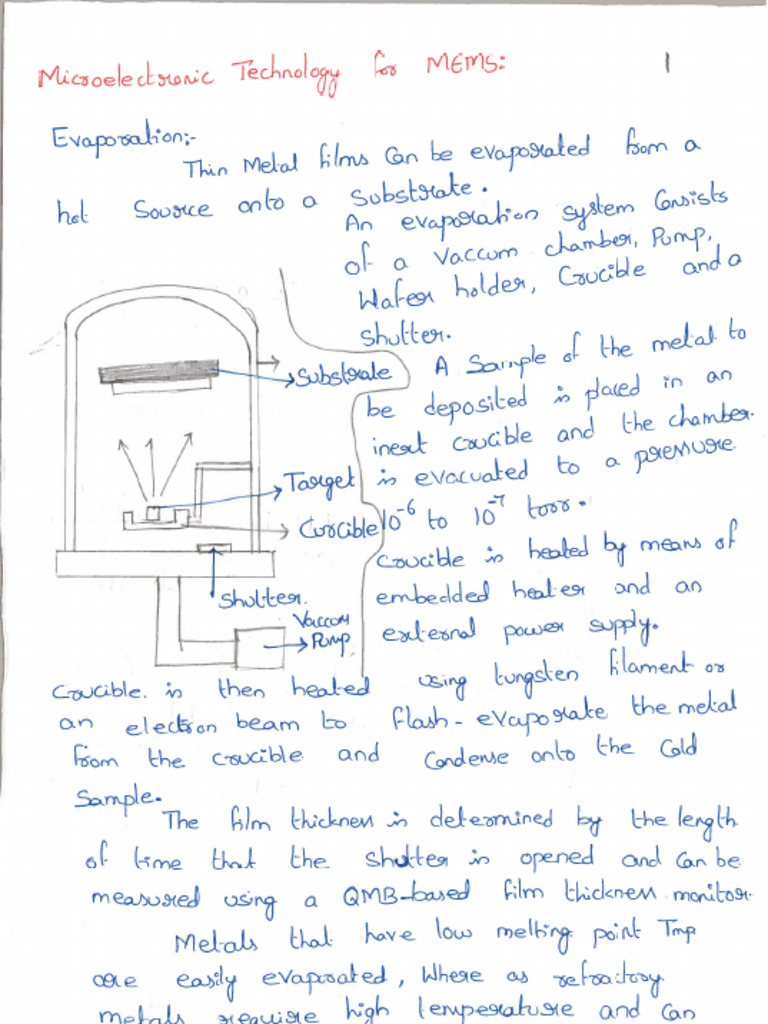 Microelectronic Technology for MEMS:
1
Evaporation:-
Thin Metal films Can be evaporated from a
hot Source onto a Substrate.
An evaporation system Consists
of a Vaccum chamber, Pump,
Wafer holder, Crucible and a
shutter.
A Sample of the metal to
be deposited is placed in an
inert crucible and the chamber
is evacuated to a pressure
10⁻⁶ to 10⁻⁷ torr.
Crucible is heated by means of
embedded heater and an
external power supply.
Substrate
Target
Curcible
Shutter.
Vaccum
Pump
Crucible is then heated using tungsten filament or
an electron beam to flash-evaporate the metal
from the crucible and Condense onto the Cold
Sample.
The film thickness is determined by the length
of time that the shutter is opened and can be
measured using a QMB-based film thickness monitor.
Metals that have low melting point Tmp
are easily evaporated, Where as refractory
metals require high temperature and can